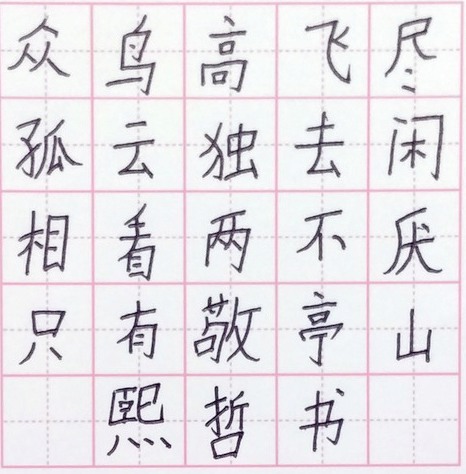 众鸟高飞尽
孤云独去闲
相看两不厌
只有敬亭山
熙哲书